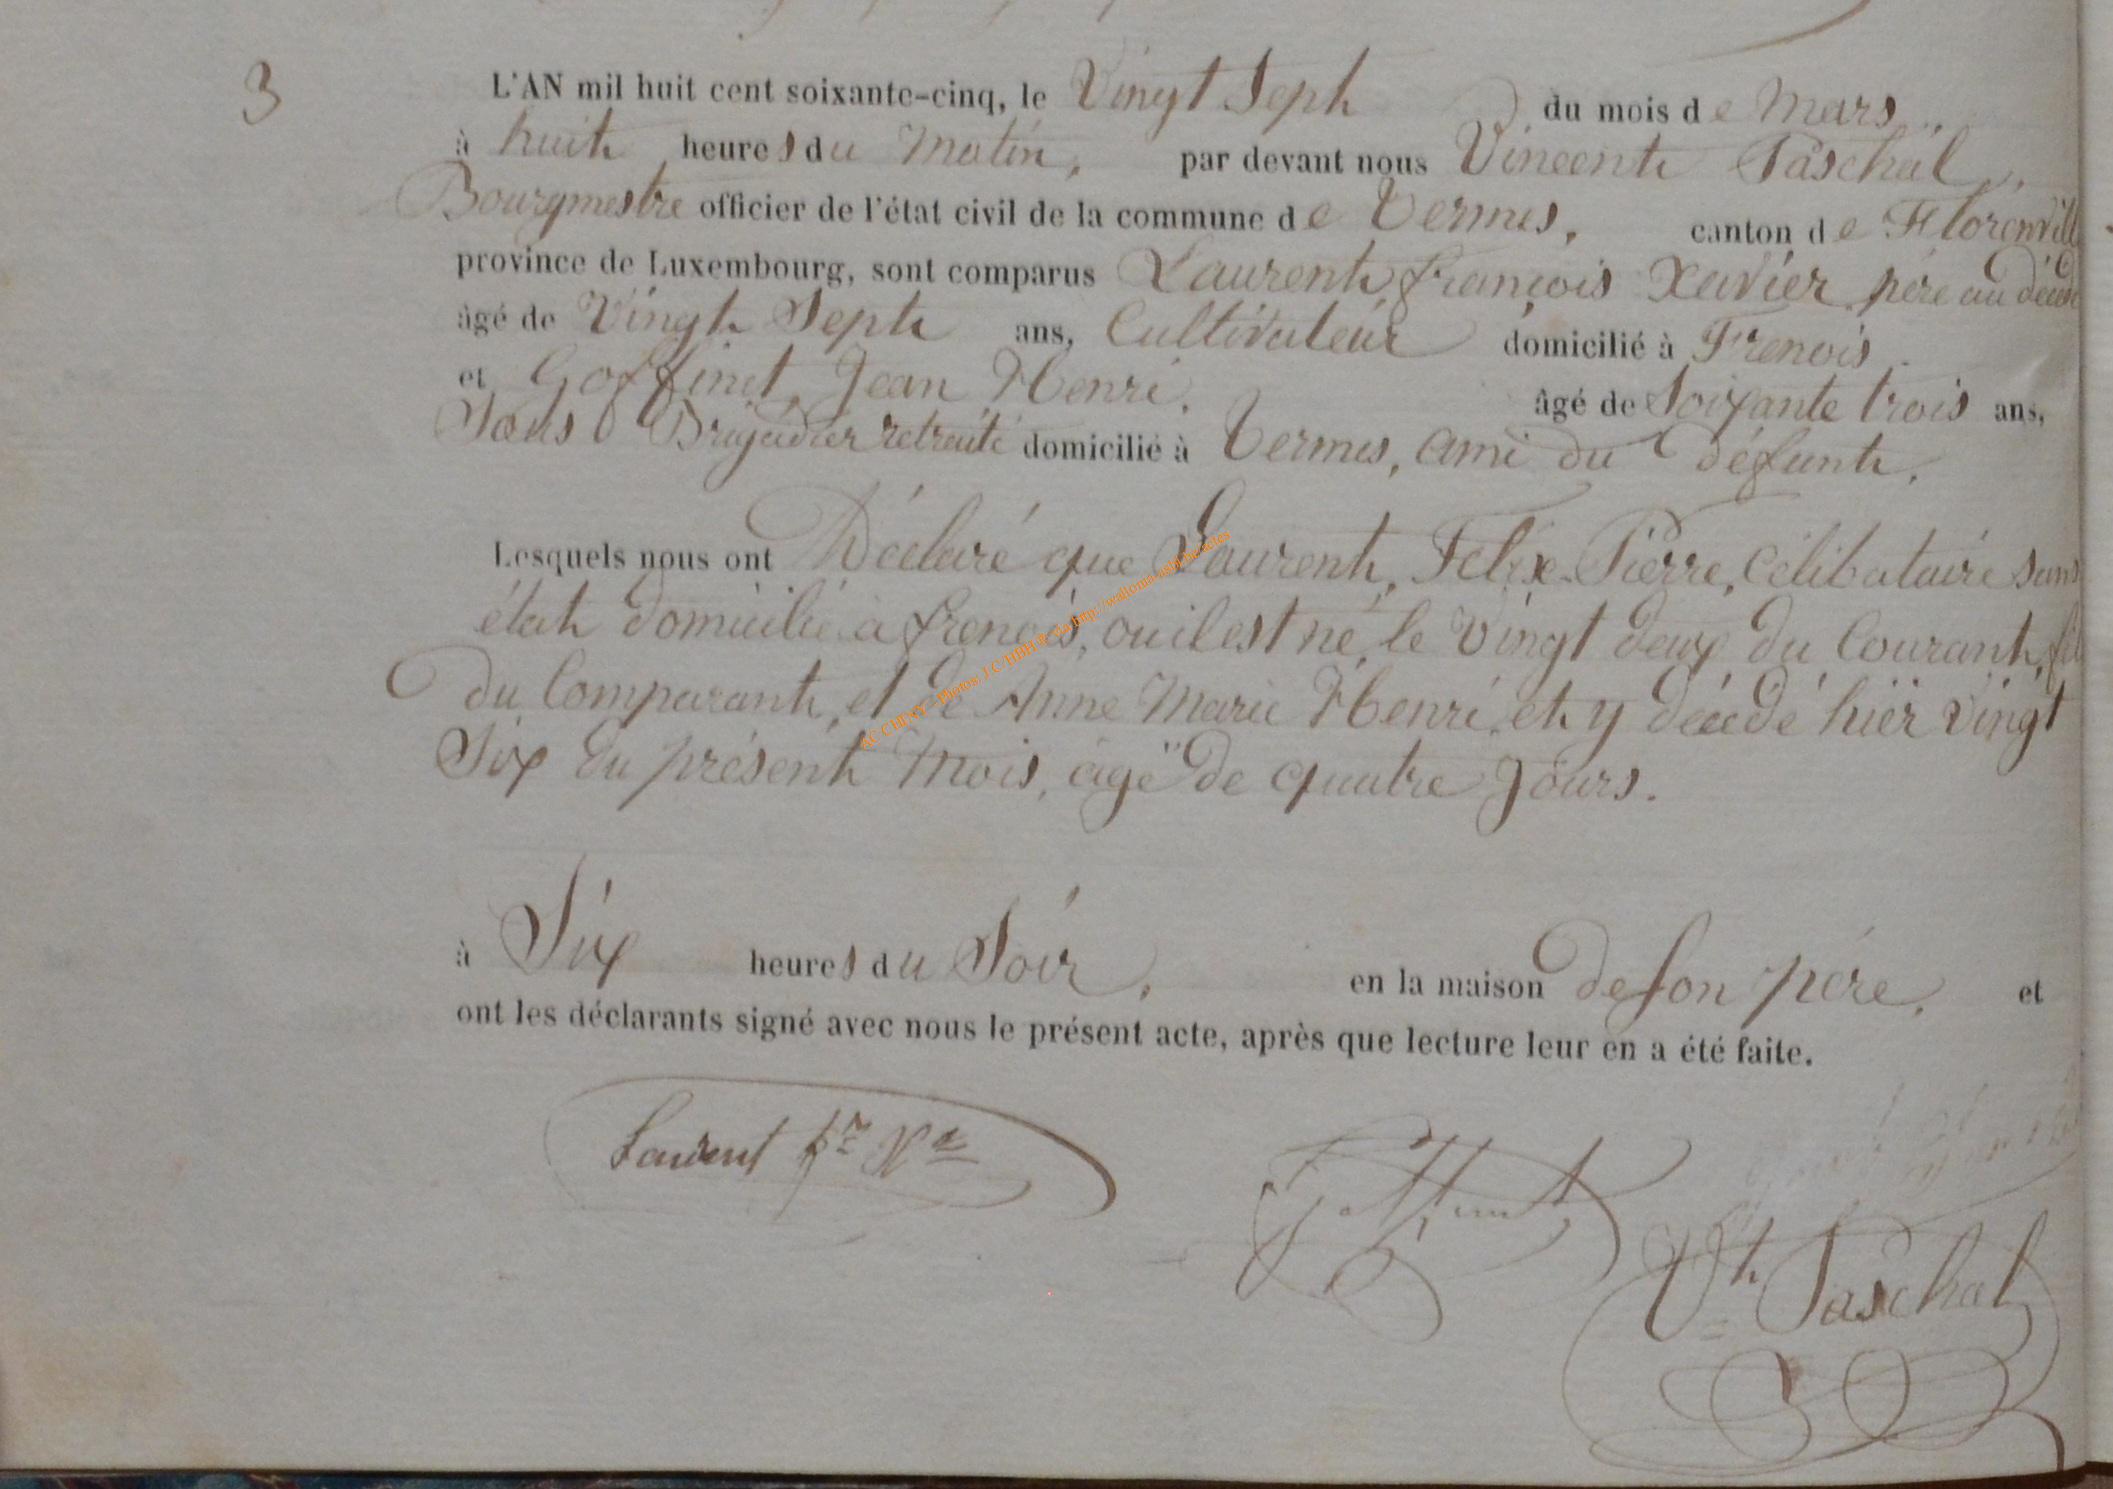 3
L'AN mil huit cent soixante-cinq, le Vingt Sept du mois de Mars
à huit heures du Matin, par devant nous Vincent Paschal,
Bourgmestre officier de l'état civil de la commune de Termes, canton de Florenville
province de Luxembourg, sont comparus Laurent françois Xavier père au décédé
âgé de Vingt Sept ans, Cultivateur domicilié à Frenois.
et Goffinet, Jean Henri, âgé de Soixante trois ans,
Sous Brigadier retraité domicilié à Termes, ami du défunt,
Lesquels nous ont Déclaré que Laurent, Felix-Pierre, Célibataire sans
état domicilié à frenois, ou il est né, le Vingt deux du Courant, fils
du Comparant, et de Anne Marie Henri, et y décédé hier Vingt
Six du présent Mois, âgé de quatre Jours.
à Six heures du Soir, en la maison de son père, et
ont les déclarants signé avec nous le présent acte, après que lecture leur en a été faite.
Laurent fr Xr
Goffinet
Vt Paschal